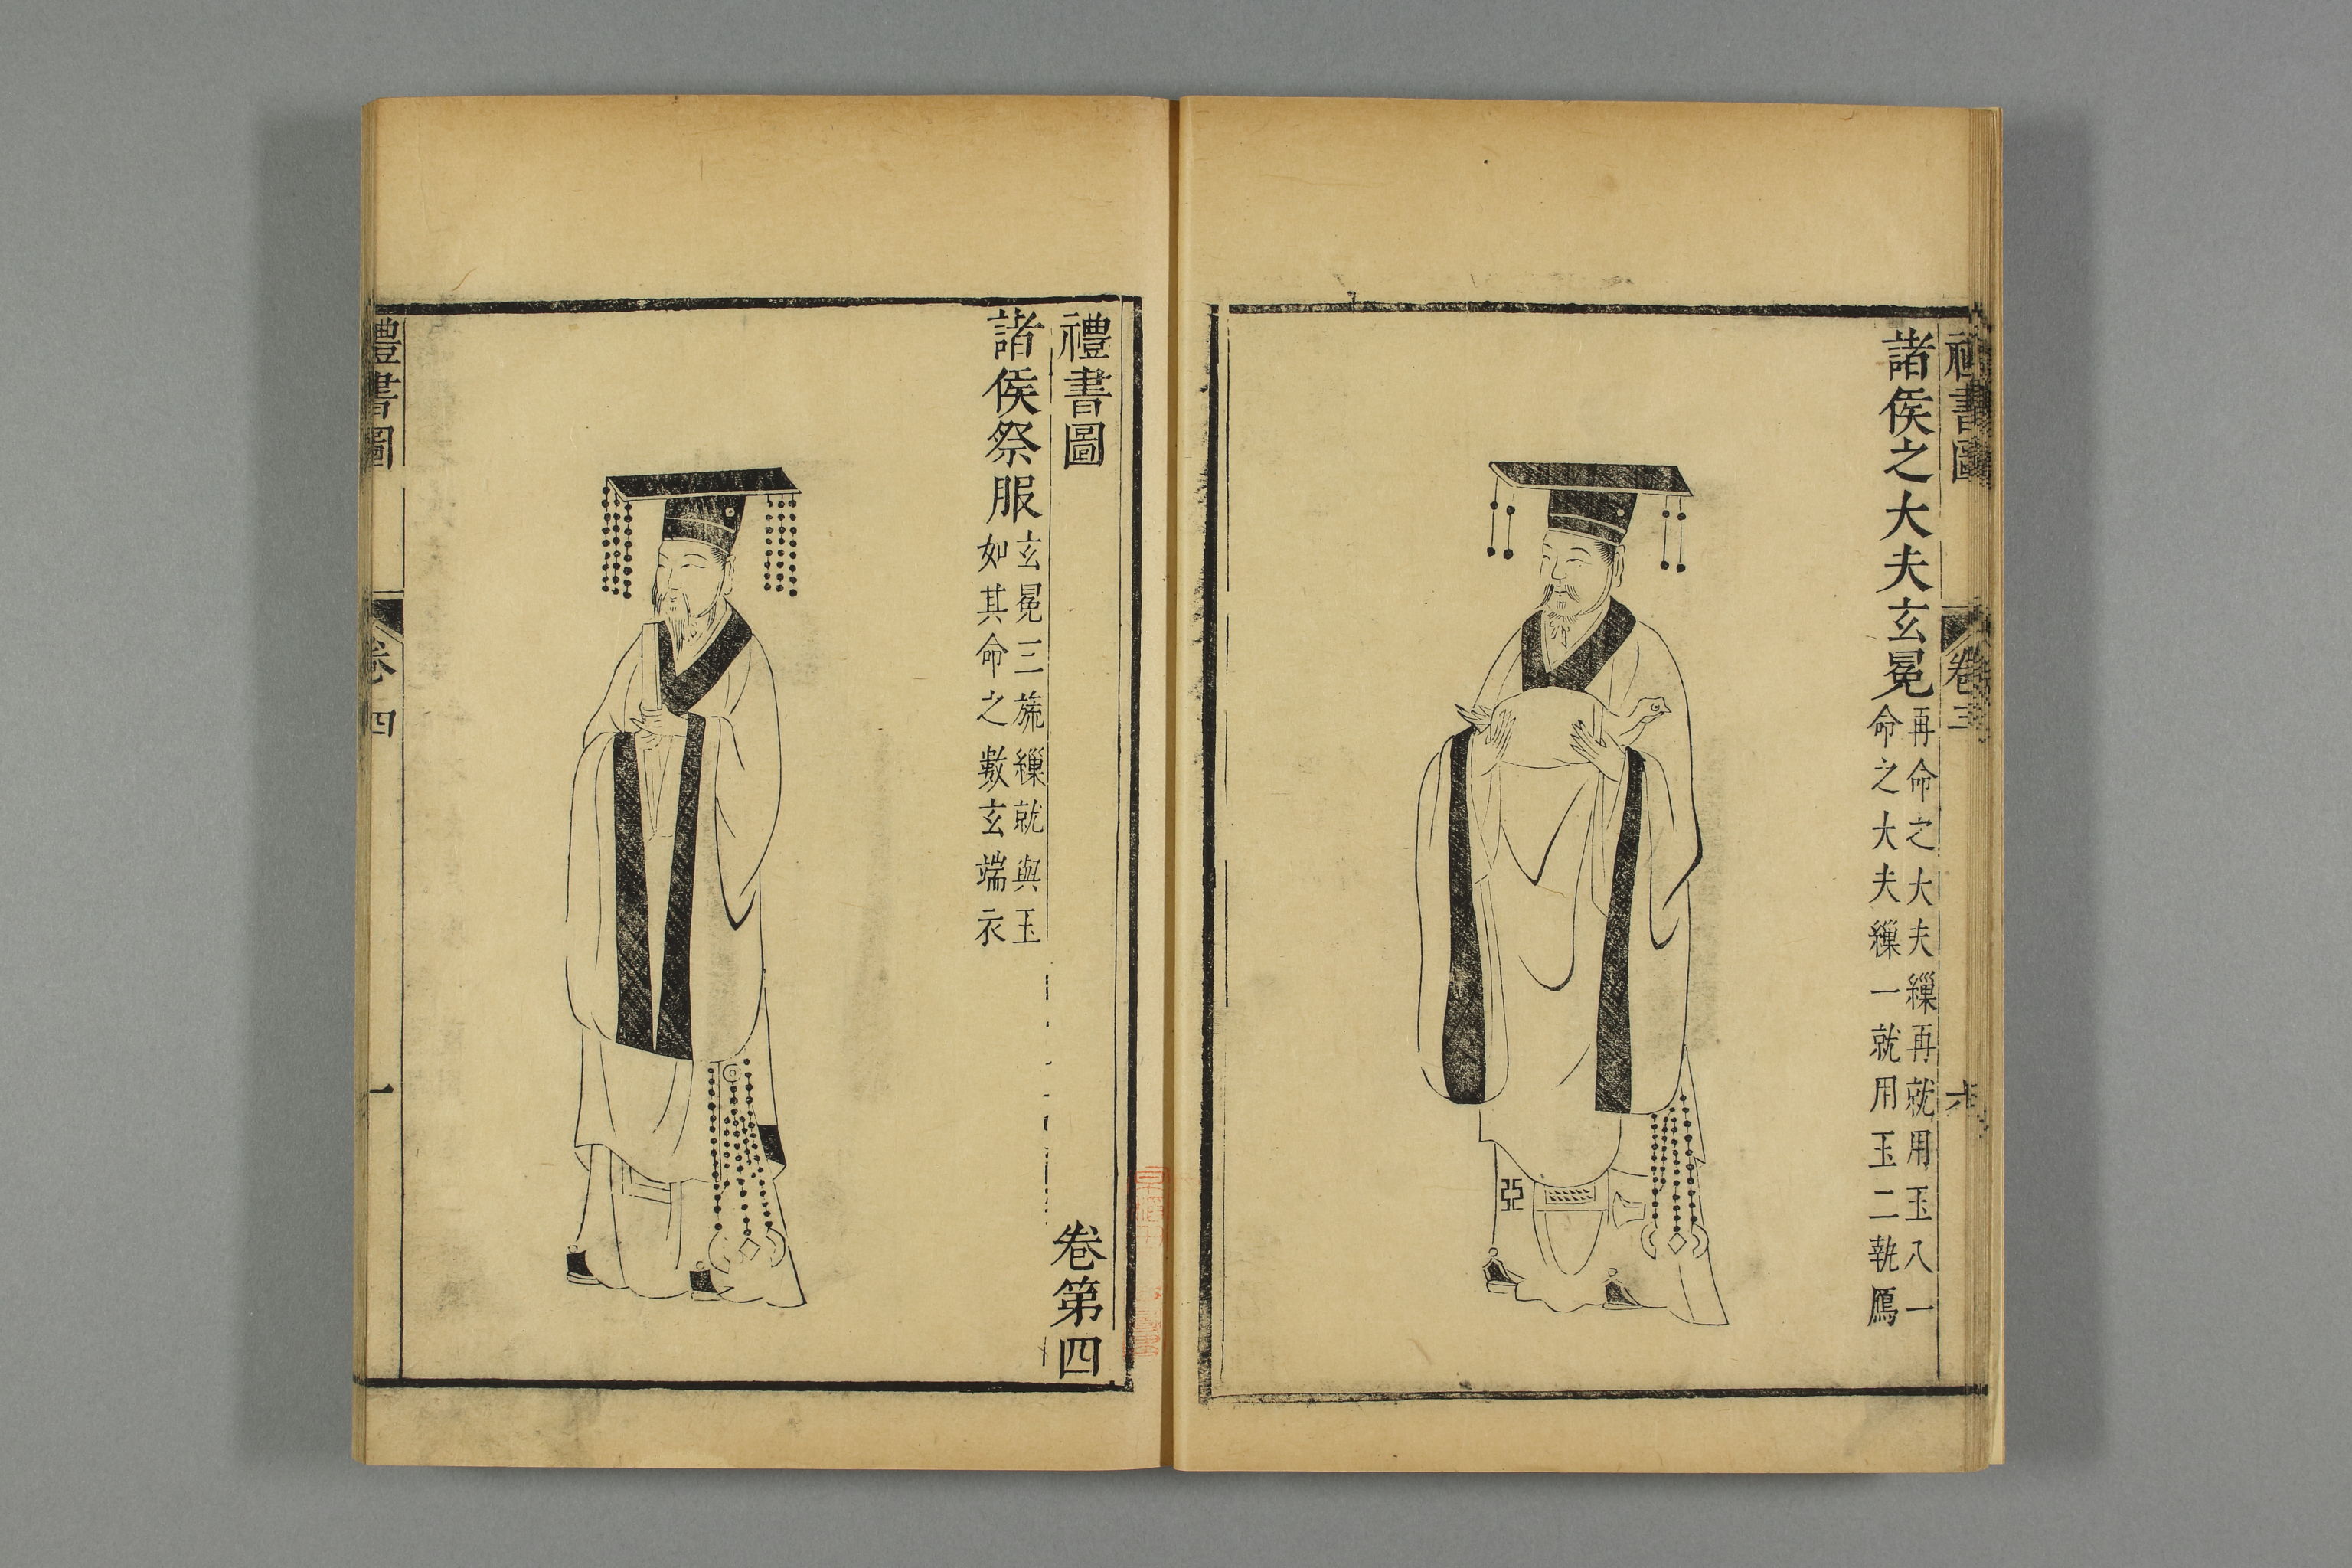 禮書圖 卷三 六
諸侯之大夫玄冕
再命之大夫繅再就用玉八一
命之大夫繅一就用玉二執鴈
亞
禮書圖 卷第四
諸侯祭服
玄冕三旒繅就與玉
如其命之數玄端衣
禮書圖 卷四 一